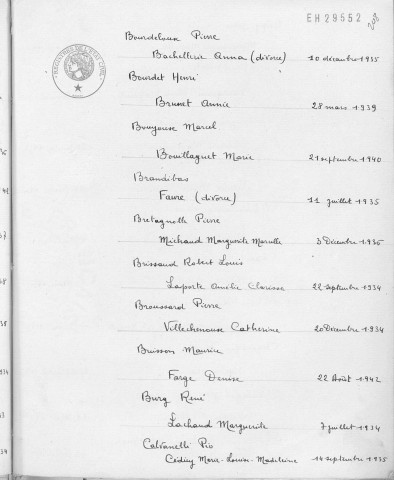 EH 29552
Bourdeloux Pierre
Bachellerie Anna (divorce) 10 décembre 1935
Bourdet Henri
Brunet Annie 28 mars 1939
Bouyousse Marcel
Bouillaguet Marie 21 septembre 1940
Brandibas
Faure (divorce) 11 juillet 1935
Bretagnolle Pierre
Michaud Marguerite Marcelle 3 Décembre 1936
Brissaud Robert Louis
Laporte Amélie Clarisse 22 septembre 1934
Broussard Pierre
Villechenouse Catherine 20 Décembre 1934
Buisson Maurice
Farge Denise 22 Août 1942
Burg René
Lachaud Marguerite 7 juillet 1934
Calvanelli Pio
Marie-Louise-Madeleine 14 septembre 1935